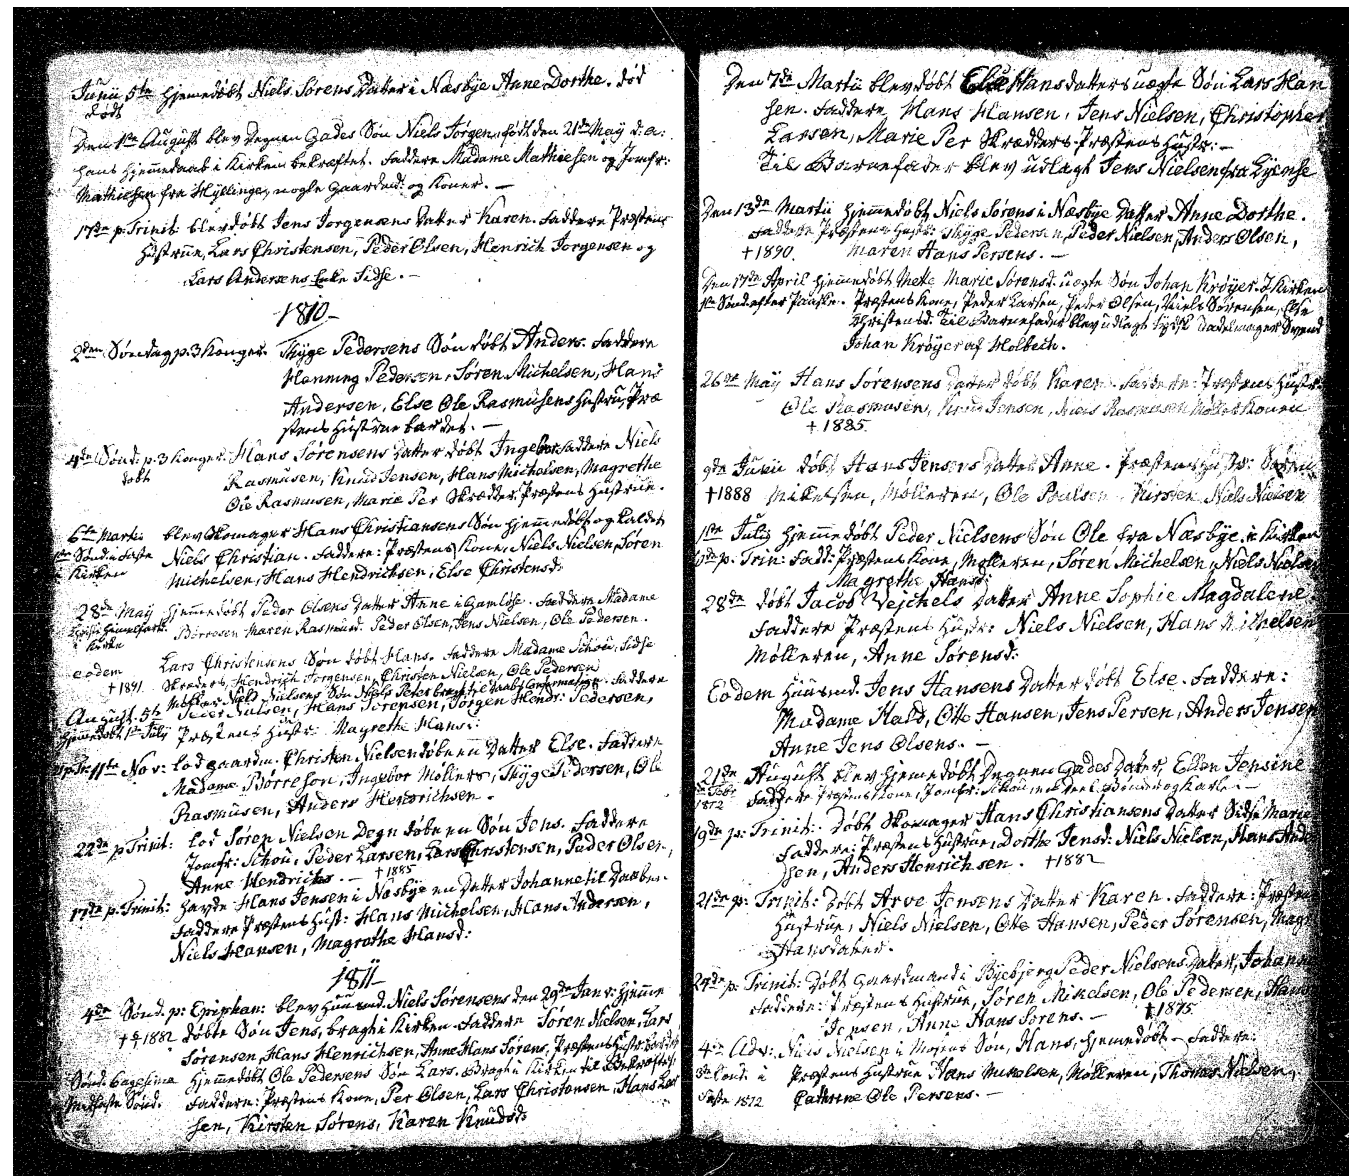 Junii 5te hjemmedøbt Niels Sørens Datter i Næsbye Anne Dorthe. død
døbt
Den 1ste August blev Degnen Gades Søn Niels Jørgen, født den 21de Maÿ d: a:
hans hjemmedaab i Kirken bekræftet. Faddere Madame Mathiesen og Jomfr:
Mathiesen fra Hyllinge, nogle Gaardmd: og Koner. —
17de p: Trinit: blev døbt Jens Jørgensens Datter Karen. Faddere Præstens
Hustrue, Lars Christensen, Peder Olsen, Henrich Jørgensen og
Lars Andersens Enke Sidse. —
1810 —
2den Søndag p. 3 Konger. Thyge Pedersens Søn døbt Anders. Faddere
Henning Pedersen, Søren Michelsen, Hans
Andersen, Else Ole Rasmusens Hustru, Præ
stens Hustrue bar det. —
4de Sønd: p. 3 Konger. Hans Sørensens Datter døbt Ingebor. Faddere Niels
døbt Rasmusen, Knud Jensen, Hans Michelsen, Magrethe
Ole Rasmusen, Marie Per Skrædder. Præstens Hustrue.
6te Martii blev Skomager Hans Christiansens Søn hjemmedøbt og kaldet
1ste Sønd: i Faste Niels Christian. Faddere: Præstens Kone, Niels Nielsen, Søren
Kirken Michelsen, Hans Hendrichsen, Else Christensd:
28de Maÿ hjemmedøbt Peder Olsens Datter Anne i Gamløse. Faddere Madame
i Kirke Børresen Maren Rasmusd. Peder Olsen, Jens Nielsen, Ole Pedersen.
eodem Lars Christensens Søn døbt Hans. Faddere Madame Schou, Sidse
† 1891 Skreders, Hendrich Jørgensen, Christen Nielsen, Ole Pedersen
August. 5te Niels Nielsens Søn Niels Peter Faddere
hjemmedøbt 1ste Julÿ Peder Nielsen, Hans Sørensen, Jørgen Hendr: Pedersen,
Præstens Hustr: Magrethe Hans:
11te Nov: lod Gaardm. Christen Nielsen døbe en Datter Else. Faddere
Madame Børreson, Ingebor Møllers, Thyge Pedersen, Ole
Rasmusen, Anders Hendrichsen.
22de p Trinit: lod Søren Nielsen Degn døbe en Søn Jens. Faddere
Jomfr: Schou, Peder Larsen, Lars Christensen, Peder Olsen,
Anne Hendrichs. — † 1885
17de p: Trinit: havde Hans Jensen i Næsbye en Datter Johanne til Daaben.
Faddere Præstens Hust: Hans Michelsen, Hans Andersen,
Niels Hansen, Magrethe Hansd:
1811
4de Sønd: p: Epiphan: blev Huusmd. Niels Sørensens den 29de Janv: hjemme
† 1882 døbte Søn Jens, bragt i Kirken. Faddere Søren Nielsen, Lars
Sørensen, Hans Henrichsen, Anne Hans Sørens, Præstens Hustr:
Hjemmedøbt Ole Pedersens Søn Lars. Bragt i Kirken
Midfaste Sønd. Faddere: Præstens Kone, Per Olsen, Lars Christensen, Hans Lar
sen, Kirsten Sørens, Karen Knudsd:
Den 7de Martii blev døbt Else Hansdatters uægte Søn Lars Han
sen. Faddere Hans Hansen, Jens Nielsen, Christopher
Larsen, Marie Per Skrædders. Præstens Hustr: —
Til Barnefader blev udlagt Jens Nielsen fra
Den 13de Martii hjemmedøbt Niels Sørens i Næsbye Datter Anne Dorthe.
Faddere Præstens Hustr: Thyge Pedersen, Peder Nielsen, Anders Olsen,
† 1890. Maren Hans Persens. —
Den 17de April hjemmedøbt Mette Marie Sørensd. uægte Søn Johan Krøyer. I Kirken
1ste Sønd. efter Paaske. Præstens Kone, Peder Larsen, Peder Olsen, Niels Sørensen, Else
Christensd: Til Barnefader blev udlagt Tydsk Sadelmager Svend
Johan Krøyer af Holbech.
26de Maÿ Hans Sørensens Datter døbt Karen. Faddere: Præstens Hustr:
Ole Rasmusen, Knud Jensen, Niels Rasmusen Møllerkonen
† 1885.
9de Junii døbt Hans Jensens Datter Anne. Præstens Hustr: Søren
† 1888 Mikelsen, Mølleren, Ole Poulsen Kirsten Niels Nielsen
1ste Julÿ hjemmedøbt Peder Nielsens Søn Ole fra Næsbye. i Kirken
p. Trin: Fadd: Præstens Kone, Mølleren, Søren Michelsen, Niels Nielsen
Magrethe Hansd:
28de døbt Jacob Vejchels Datter Anne Sophie Magdalene.
Faddere Præstens Hustr: Niels Nielsen, Hans Mikelsen
Mølleren, Anne Sørensd:
Eodem Huusmd: Jens Hansens Datter døbt Else. Faddere:
Madame Hald, Otte Hansen, Jens Persen, Anders Jensen
Anne Jens Olsens. —
21de August blev hjemmedøbt Degnen Gades Datter, Ellen Jensine
1872 Faddere Præstens Kone, Jomfr: Schou,
19de p: Trinit: Døbt Skomager Hans Christiansens Datter Sidse Marie
Faddere: Præstens Hustrue, Dorthe Jensd: Niels Nielsen, Hans Ander
sen, Anders Henrichsen. † 1882
21de p: Trinit: Døbt Arve Jensens Datter Karen. Faddere: Præstens
Hustrue, Niels Nielsen, Otte Hansen, Peder Sørensen, Magr
Hansdatter.
24de p: Trinit: Døbt Gaardmand i Byebjerg Peder Nielsens Datter, Johanne
Faddere: Præstens Hustrue, Søren Mikelsen, Ole Pedersen, Hans
Jensen, Anne Hans Sørens. — † 1875
4de Adv: Niels Nielsen i Mosens Søn, Hans, hjemmedøbt — Faddere:
Sønd: i Præstens Hustrue Hans Mikelsen, Mølleren, Thomas Nielsen,
Faste 1812 Cathrine Ole Persens. —